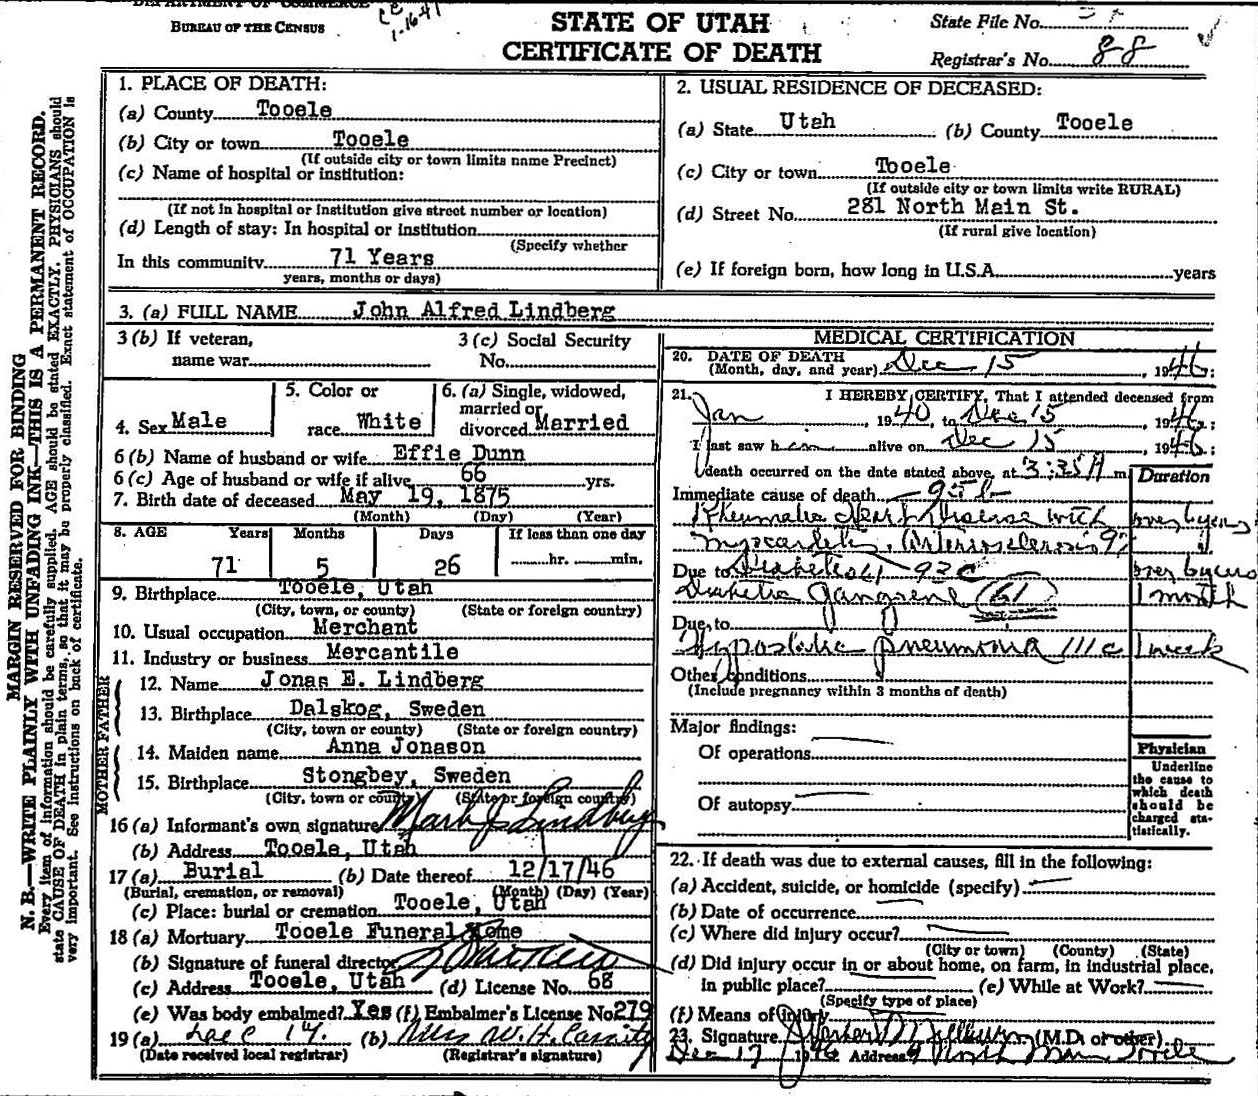 DEPARTMENT OF COMMERCE
BUREAU OF THE CENSUS
1-16-41
STATE OF UTAH
CERTIFICATE OF DEATH
State File No.
Registrar's No. 88
MARGIN RESERVED FOR BINDING
N. B.—WRITE PLAINLY WITH UNFADING INK—THIS IS A PERMANENT RECORD.
Every item of information should be carefully supplied. AGE should be stated EXACTLY. PHYSICIANS should
state CAUSE OF DEATH in plain terms, so that it may be properly classified. Exact statement of OCCUPATION is
very important. See instructions on back of certificate.
1. PLACE OF DEATH:
(a) County Tooele
(b) City or town Tooele
(If outside city or town limits name Precinct)
(c) Name of hospital or institution:
(If not in hospital or institution give street number or location)
(d) Length of stay: In hospital or institution
(Specify whether
In this community 71 Years
years, months or days)
2. USUAL RESIDENCE OF DECEASED:
(a) State Utah (b) County Tooele
(c) City or town Tooele
(If outside city or town limits write RURAL)
(d) Street No. 281 North Main St.
(If rural give location)
(e) If foreign born, how long in U.S.A. years
3. (a) FULL NAME John Alfred Lindberg
3 (b) If veteran,
name war
3 (c) Social Security
No.
4. Sex Male
5. Color or
race White
6. (a) Single, widowed,
married or
divorced Married
6 (b) Name of husband or wife Effie Dunn
6 (c) Age of husband or wife if alive 66 yrs.
7. Birth date of deceased May 19, 1875
(Month) (Day) (Year)
8. AGE Years Months Days If less than one day
71 5 26 hr. min.
9. Birthplace Tooele, Utah
(City, town, or county) (State or foreign country)
10. Usual occupation Merchant
11. Industry or business Mercantile
FATHER
12. Name Jonas E. Lindberg
13. Birthplace Dalskog, Sweden
(City, town or county) (State or foreign country)
MOTHER
14. Maiden name Anna Jonason
15. Birthplace Stongbey, Sweden
(City, town or county) (State or foreign country)
16 (a) Informant's own signature Mark J Lindberg
(b) Address Tooele, Utah
17 (a) Burial (b) Date thereof 12/17/46
(Burial, cremation, or removal) (Month) (Day) (Year)
(c) Place: burial or cremation Tooele, Utah
18 (a) Mortuary Tooele Funeral Home
(b) Signature of funeral director
(c) Address Tooele, Utah (d) License No. 68
(e) Was body embalmed? Yes (f) Embalmer's License No 279
19 (a) Dec 17. (b) Miss W. H. Cassity
(Date received local registrar) (Registrar's signature)
MEDICAL CERTIFICATION
20. DATE OF DEATH
(Month, day, and year) Dec 15, 1946:
21. I HEREBY CERTIFY, That I attended deceased from
Jan, 1940, to Dec 15, 1946;
I last saw him alive on Dec 15, 1946;
death occurred on the date stated above, at 3:35A m
Duration
Immediate cause of death 95b
Rheumatic Heart Disease with over 6 years
myocarditis, Arteriosclerosis 97
Due to Diabetes 61 93c over 6 years
Diabetic gangrene (61) 1 month
Due to
Hypostatic pneumonia 111c 1 week
Other conditions
(Include pregnancy within 3 months of death)
Major findings:
Of operations
Of autopsy
Physician
Underline
the cause to
which death
should be
charged sta-
tistically.
22. If death was due to external causes, fill in the following:
(a) Accident, suicide, or homicide (specify)
(b) Date of occurrence
(c) Where did injury occur?
(City or town) (County) (State)
(d) Did injury occur in or about home, on farm, in industrial place,
in public place? (e) While at Work?
(Specify type of place)
(f) Means of injury
23. Signature (M.D. or other)
Dec 17 1946 Address North Main Tooele